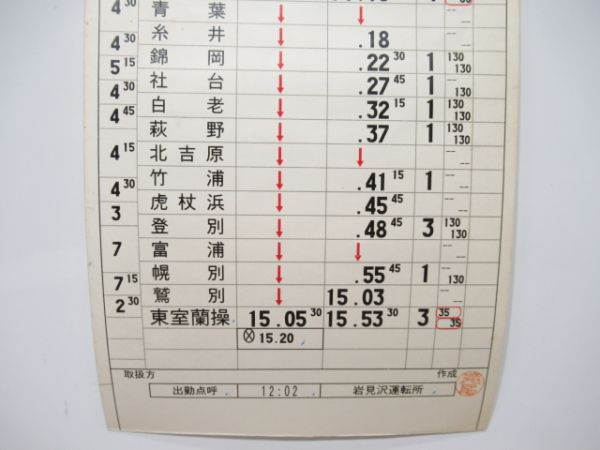 4 30
青葉 ↓ ↓
糸井 ↓ .18
4 30
錦岡 ↓ .22 30 1 130 130
5 15
社台 ↓ .27 45 1 130 130
4 30
白老 ↓ .32 15 1 130 130
4 45
萩野 ↓ .37 1 130 130
北吉原 ↓ ↓
4 15
竹浦 ↓ .41 15 1
4 30
虎杖浜 ↓ .45 45
3
登別 ↓ .48 45 3 130 130
富浦 ↓ ↓
7
幌別 ↓ .55 45 1 130
7 15
鷲別 ↓ 15.03
2 30
東室蘭操 15.05 30 15.53 30 3 35 35
Ⓧ 15.20
取扱方 作成
出勤点呼 12:02 岩見沢運転所